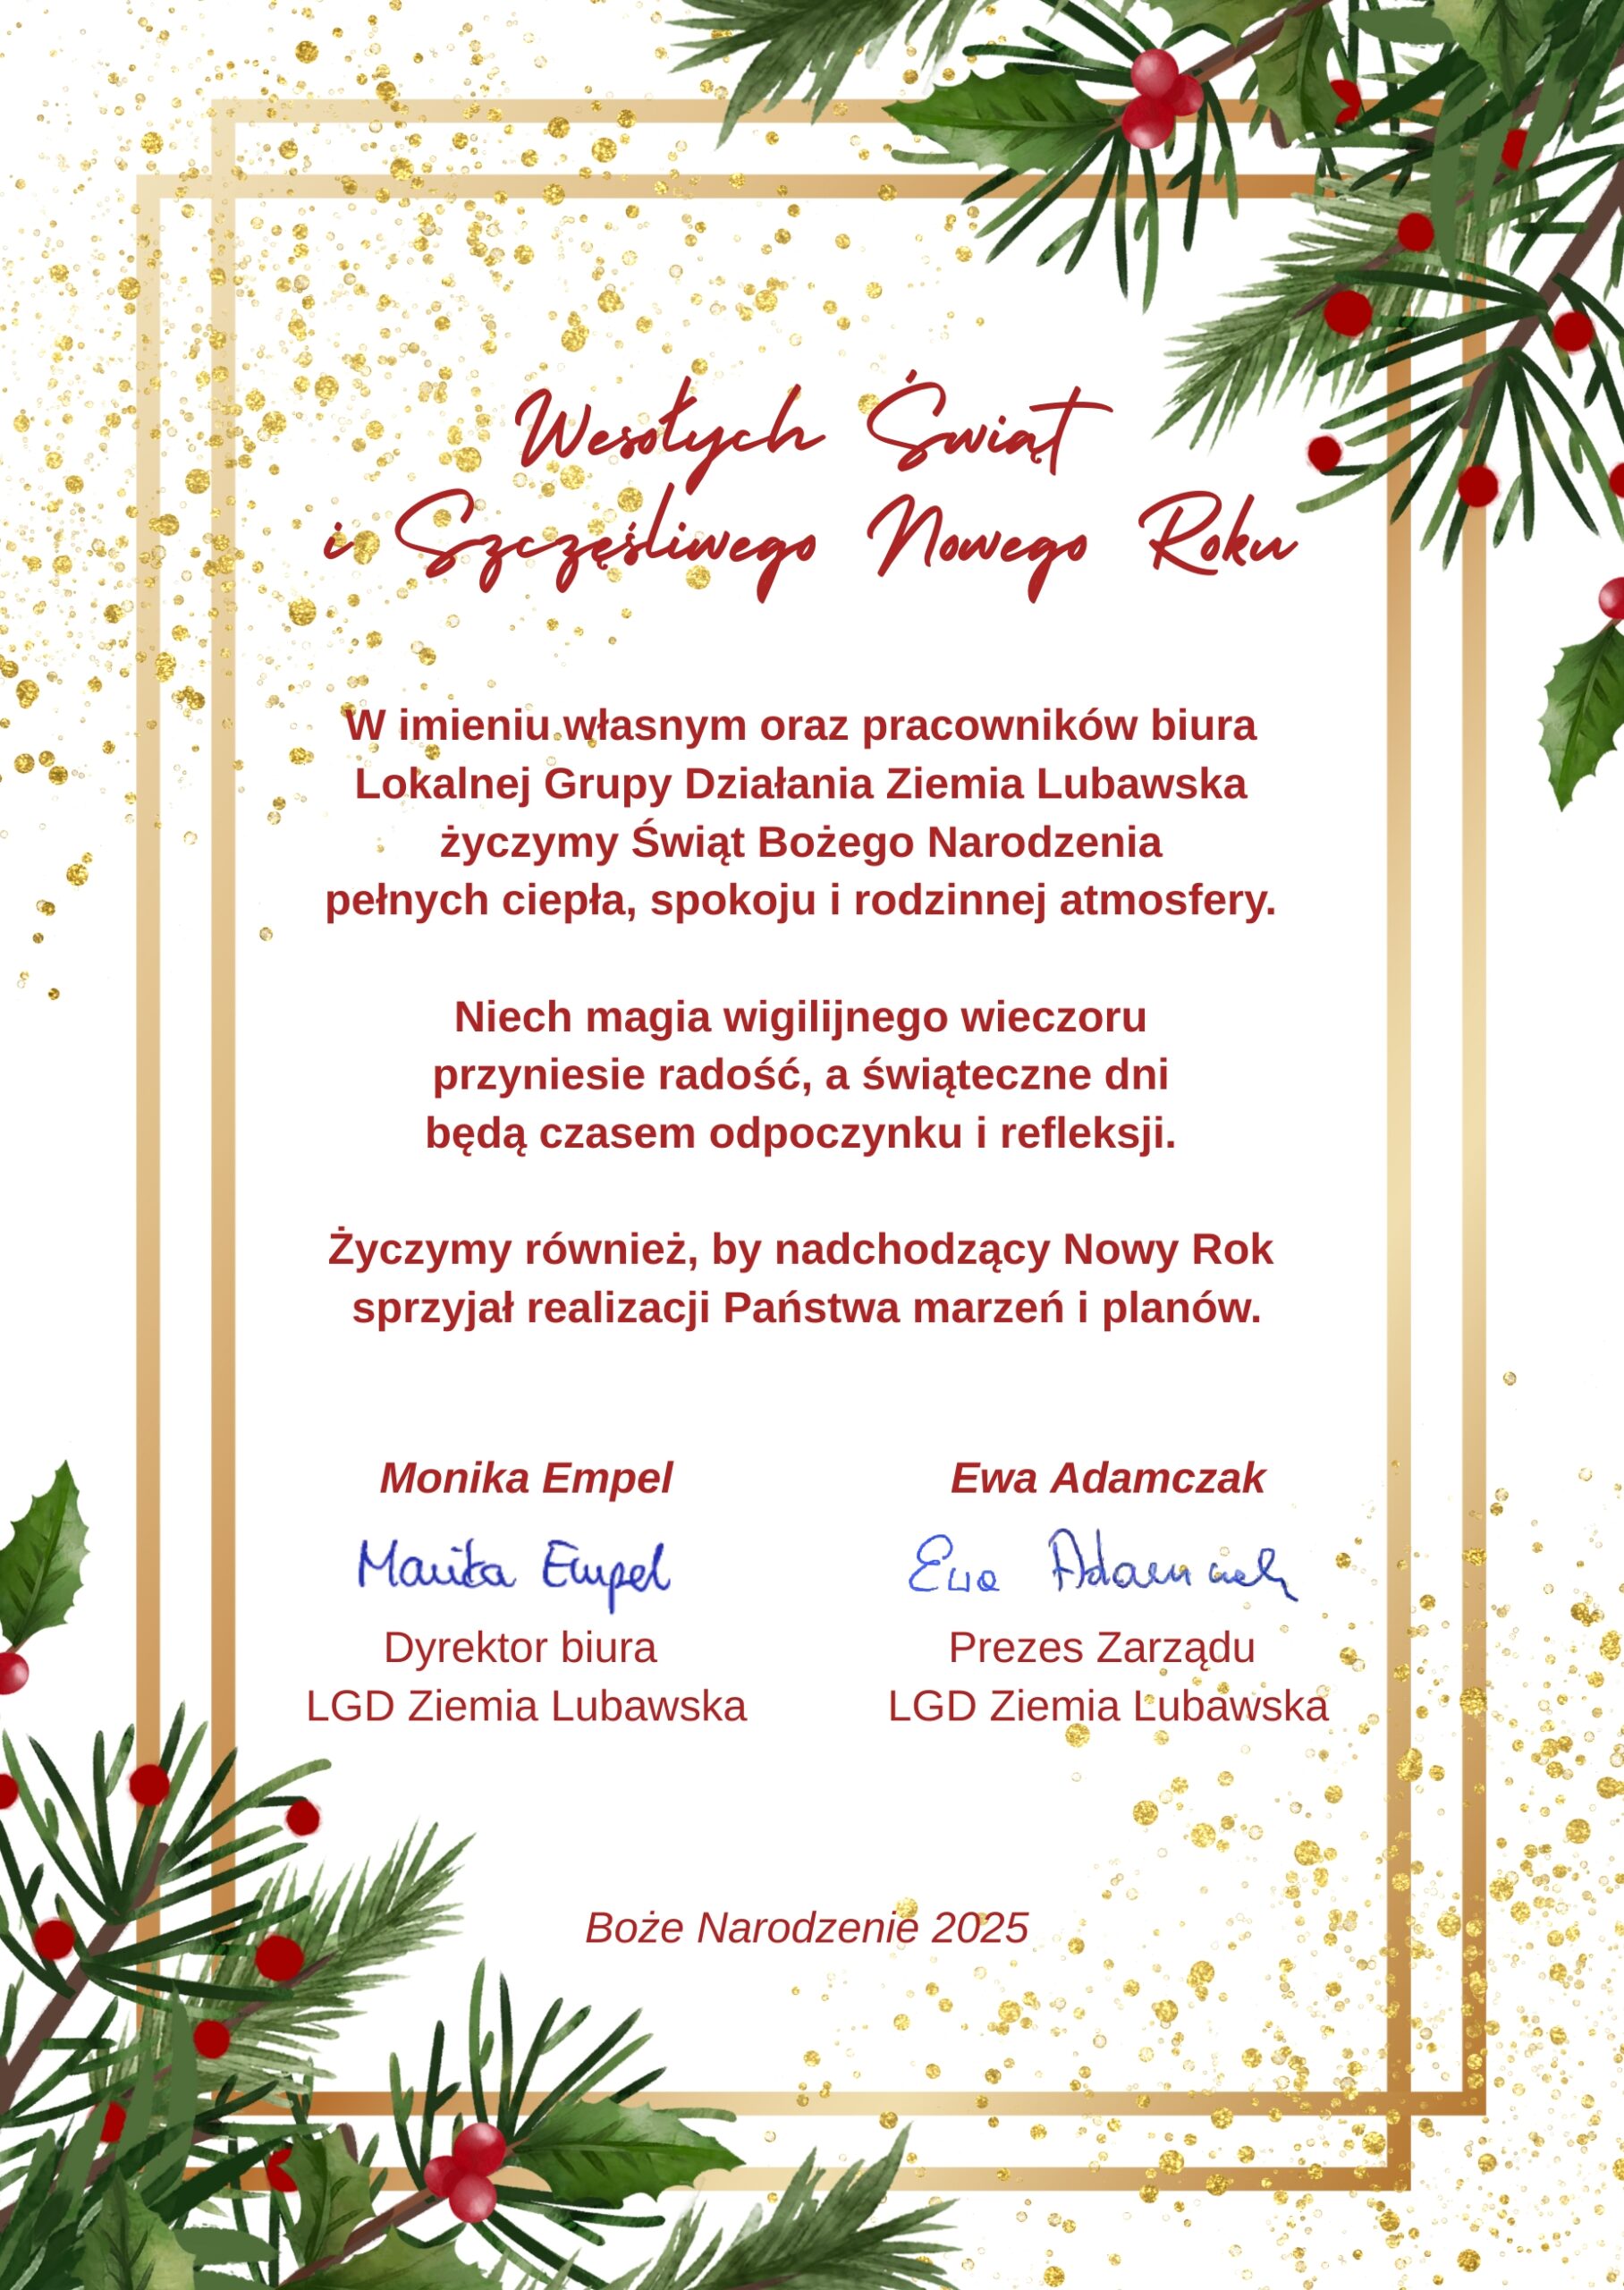 Wesołych Świąt
i Szczęśliwego Nowego Roku
W imieniu własnym oraz pracowników biura
Lokalnej Grupy Działania Ziemia Lubawska
życzymy Świąt Bożego Narodzenia
pełnych ciepła, spokoju i rodzinnej atmosfery.
Niech magia wigilijnego wieczoru
przyniesie radość, a świąteczne dni
będą czasem odpoczynku i refleksji.
Życzymy również, by nadchodzący Nowy Rok
sprzyjał realizacji Państwa marzeń i planów.
Monika Empel
Monika Empel
Dyrektor biura
LGD Ziemia Lubawska
Ewa Adamczak
Ewa Adamczak
Prezes Zarządu
LGD Ziemia Lubawska
Boże Narodzenie 2025